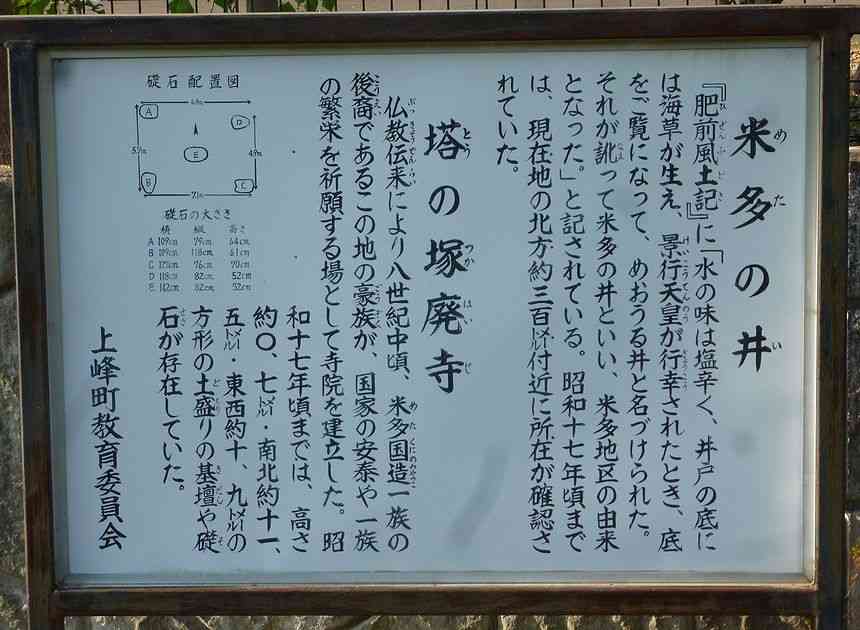 米多の井
『肥前風土記』に「水の味は塩辛く、井戸の底に
は海草が生え、景行天皇が行幸されたとき、底
をご覧になって、めおうる井と名づけられた。
それが訛って米多の井といい、米多地区の由来
となった。」と記されている。昭和十七年頃まで
は、現在地の北方約三百㍍付近に所在が確認さ
れていた。
塔の塚廃寺
仏教伝来により八世紀中頃、米多国造一族の
後裔であるこの地の豪族が、国家の安泰や一族
の繁栄を祈願する場として寺院を建立した。昭
和十七年頃までは、高さ
約〇、七㍍・南北約十一、
五㍍・東西約十、九㍍の
方形の土盛りの基壇や礎
石が存在していた。
礎石配置図
A
D
E
B
C
4.9m
7.1m
礎石の大きさ
横 縦 高さ
A 109cm 79cm 64cm
B 109cm 118cm 61cm
C 121cm 76cm 70cm
D 118cm 82cm 52cm
E 112cm 82cm 52cm
上峰町教育委員会